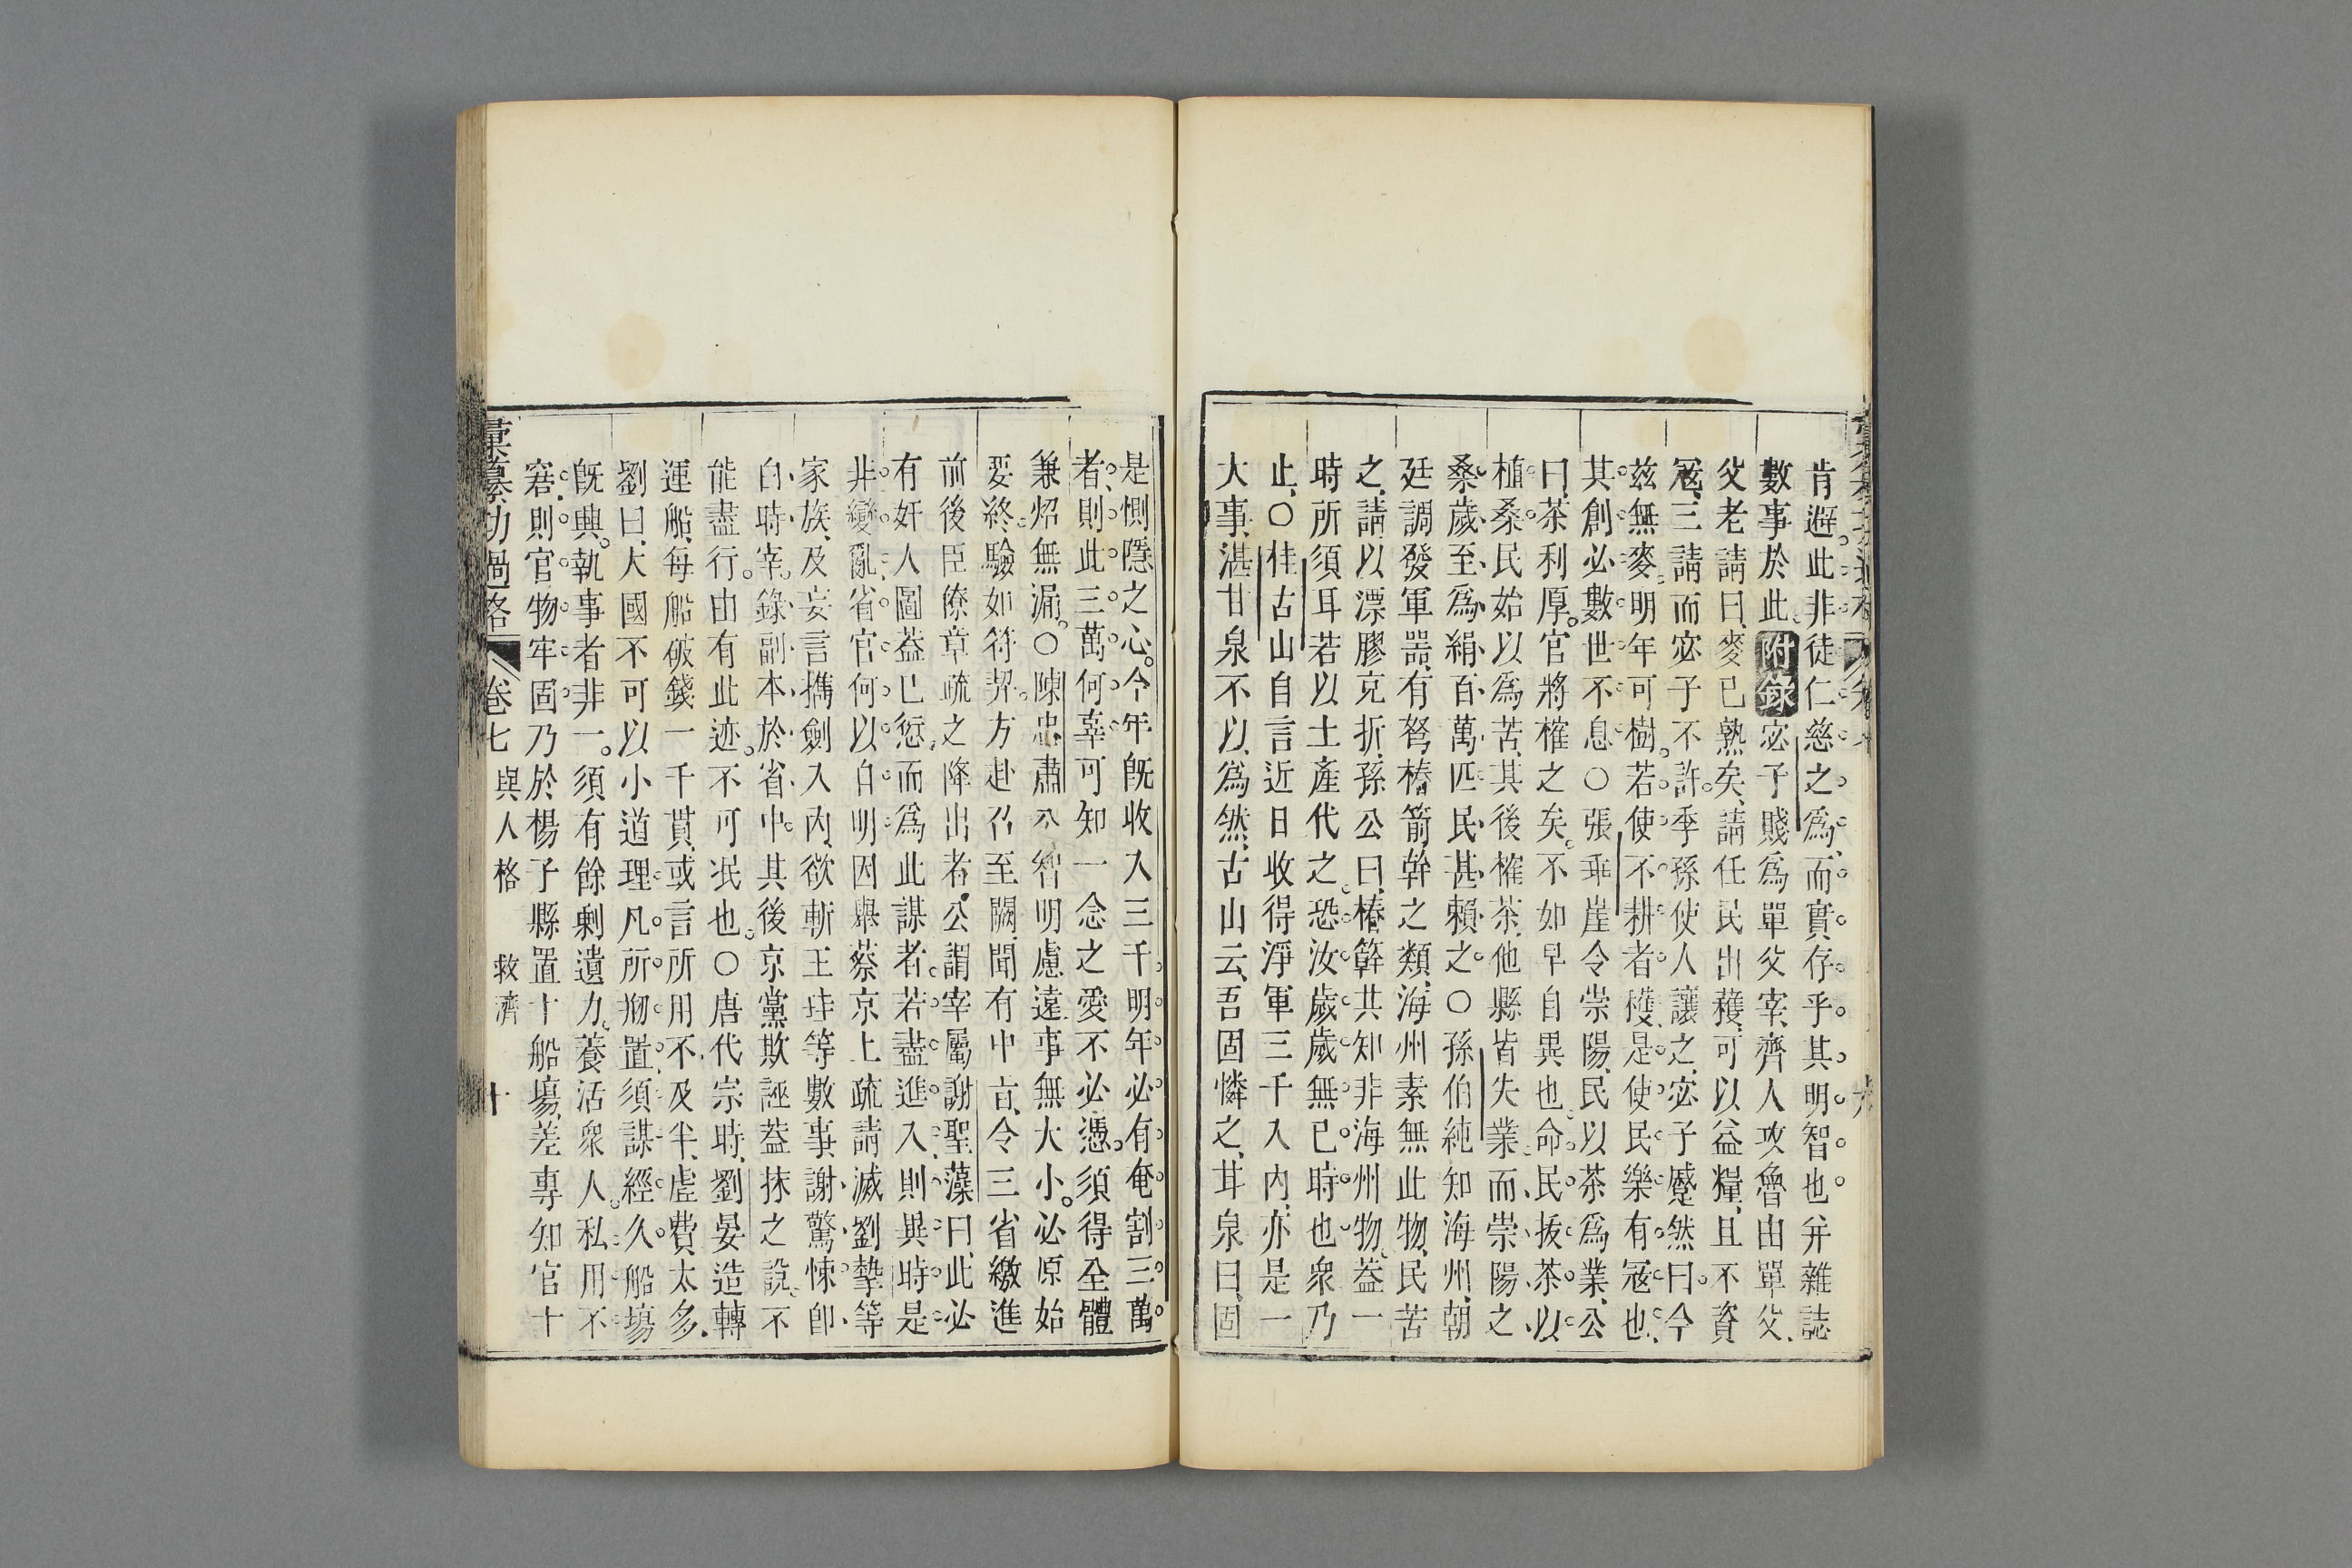 肯遲此非徒仁慈之爲而實存乎其明智也并雜誌
數事於此附錄宓子賤爲單父宰齊人攻魯由單父
父老請曰麥已熟矣請任民出穫可以益糧且不資
寇三請而宓子不許季孫使人讓之宓子蹙然曰今
玆無麥明年可樹若使不耕者穫是使民樂有寇也
其創必數世不息○張乖崖令崇陽民以茶爲業公
曰茶利厚官將榷之矣不如早自異也命民拔茶以
植桑民始以爲苦其後榷茶他縣皆失業而崇陽之
桑歲至爲絹百萬匹民甚賴之○孫伯純知海州朝
廷調發軍噐有弩樁箭幹之類海州素無此物民苦
之請以漂膠充折孫公曰樁簳共知非海州物葢一
時所須耳若以土產代之恐汝歲歲無已時也衆乃
止○桂古山自言近日收得淨軍三千入內亦是一
大事湛甘泉不以爲然古山云吾固憐之耳泉曰固
是惻隱之心今年旣收入三千明年必有奄割三萬
者則此三萬何辜可知一念之愛不必憑須得全體
兼炤無漏○陳忠肅公智明慮遠事無大小必原始
要終驗如符契方赴召至闕聞有中㫖令三省繳進
前後臣僚章疏之降出者公謂宰屬謝聖藻曰此必
有奸人圖葢已愆而爲此謀者若盡進入則異時是
非變亂省官何以自明因舉蔡京上疏請滅劉摯等
家族及妄言擕劍入內欲斬王珪等數事謝驚悚卽
白時宰錄副本於省中其後京黨欺誣葢抹之說不
能盡行由有此迹不可泯也○唐代宗時劉晏造轉
運船每船破錢一千貫或言所用不及半虛費太多
劉曰大國不可以小道理凡所剏置須謀經久船塲
旣興執事者非一須有餘剩遺力養活衆人私用不
窘則官物牢固乃於楊子縣置十船塲差專知官十
彙纂功過格 卷七 與人格 救濟 十